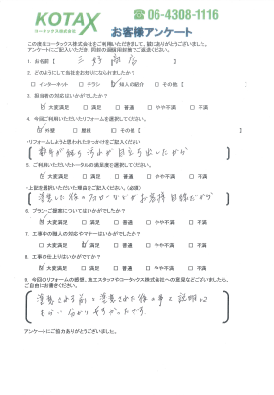 KOTAX
コータックス株式会社
☎ 06-4308-1116
お客様アンケート
この度はコータックス株式会社をご利用いただきまして、誠にありがとうございました。
アンケートにご記入いただき 同封の返信用封筒でご返送ください。
1. お名前 【 】
2. どのようにして当社をお知りになられましたか?
□ インターネット □ チラシ ☑ 知人の紹介 □ その他 【
3. 担当者の対応はいかがでしたか?
☑ 大変満足 □ 満足 □ 普通 □ やや不満 □ 不満
4. 今回ご利用いただいたリフォームを選択してください。
☑ 外壁 □ 屋根 □ その他 【 】
・リフォームしようと思われたきっかけをご記入ください
年月が経ち汚れが目立ち出したから
5. ご利用いただいたトータルの満足度を選択してください。
☑ 大変満足 □ 満足 □ 普通 □ やや不満 □ 不満
・上記を選択いただいた理由をご記入ください。(必須)
塗装した後のアフターなどがお客様目線だから
6. プランご提案についてはいかがでしたか?
☑ 大変満足 □ 満足 □ 普通 □ やや不満 □ 不満
7. 工事中の職人の対応やマナーはいかがでしたか?
□ 大変満足 ☑ 満足 □ 普通 □ やや不満 □ 不満
8. 工事の仕上りはいかがですか?
☑ 大変満足 □ 満足 □ 普通 □ やや不満 □ 不満
9. 今回のリフォームの感想、友工スタッフやコータックス株式会社への要望などございましたら、
ご自由にお書きください。
塗装される前と塗装された後の事を説明して
もらい分かりやすかったです。
アンケートにご協力ありがとうございました。